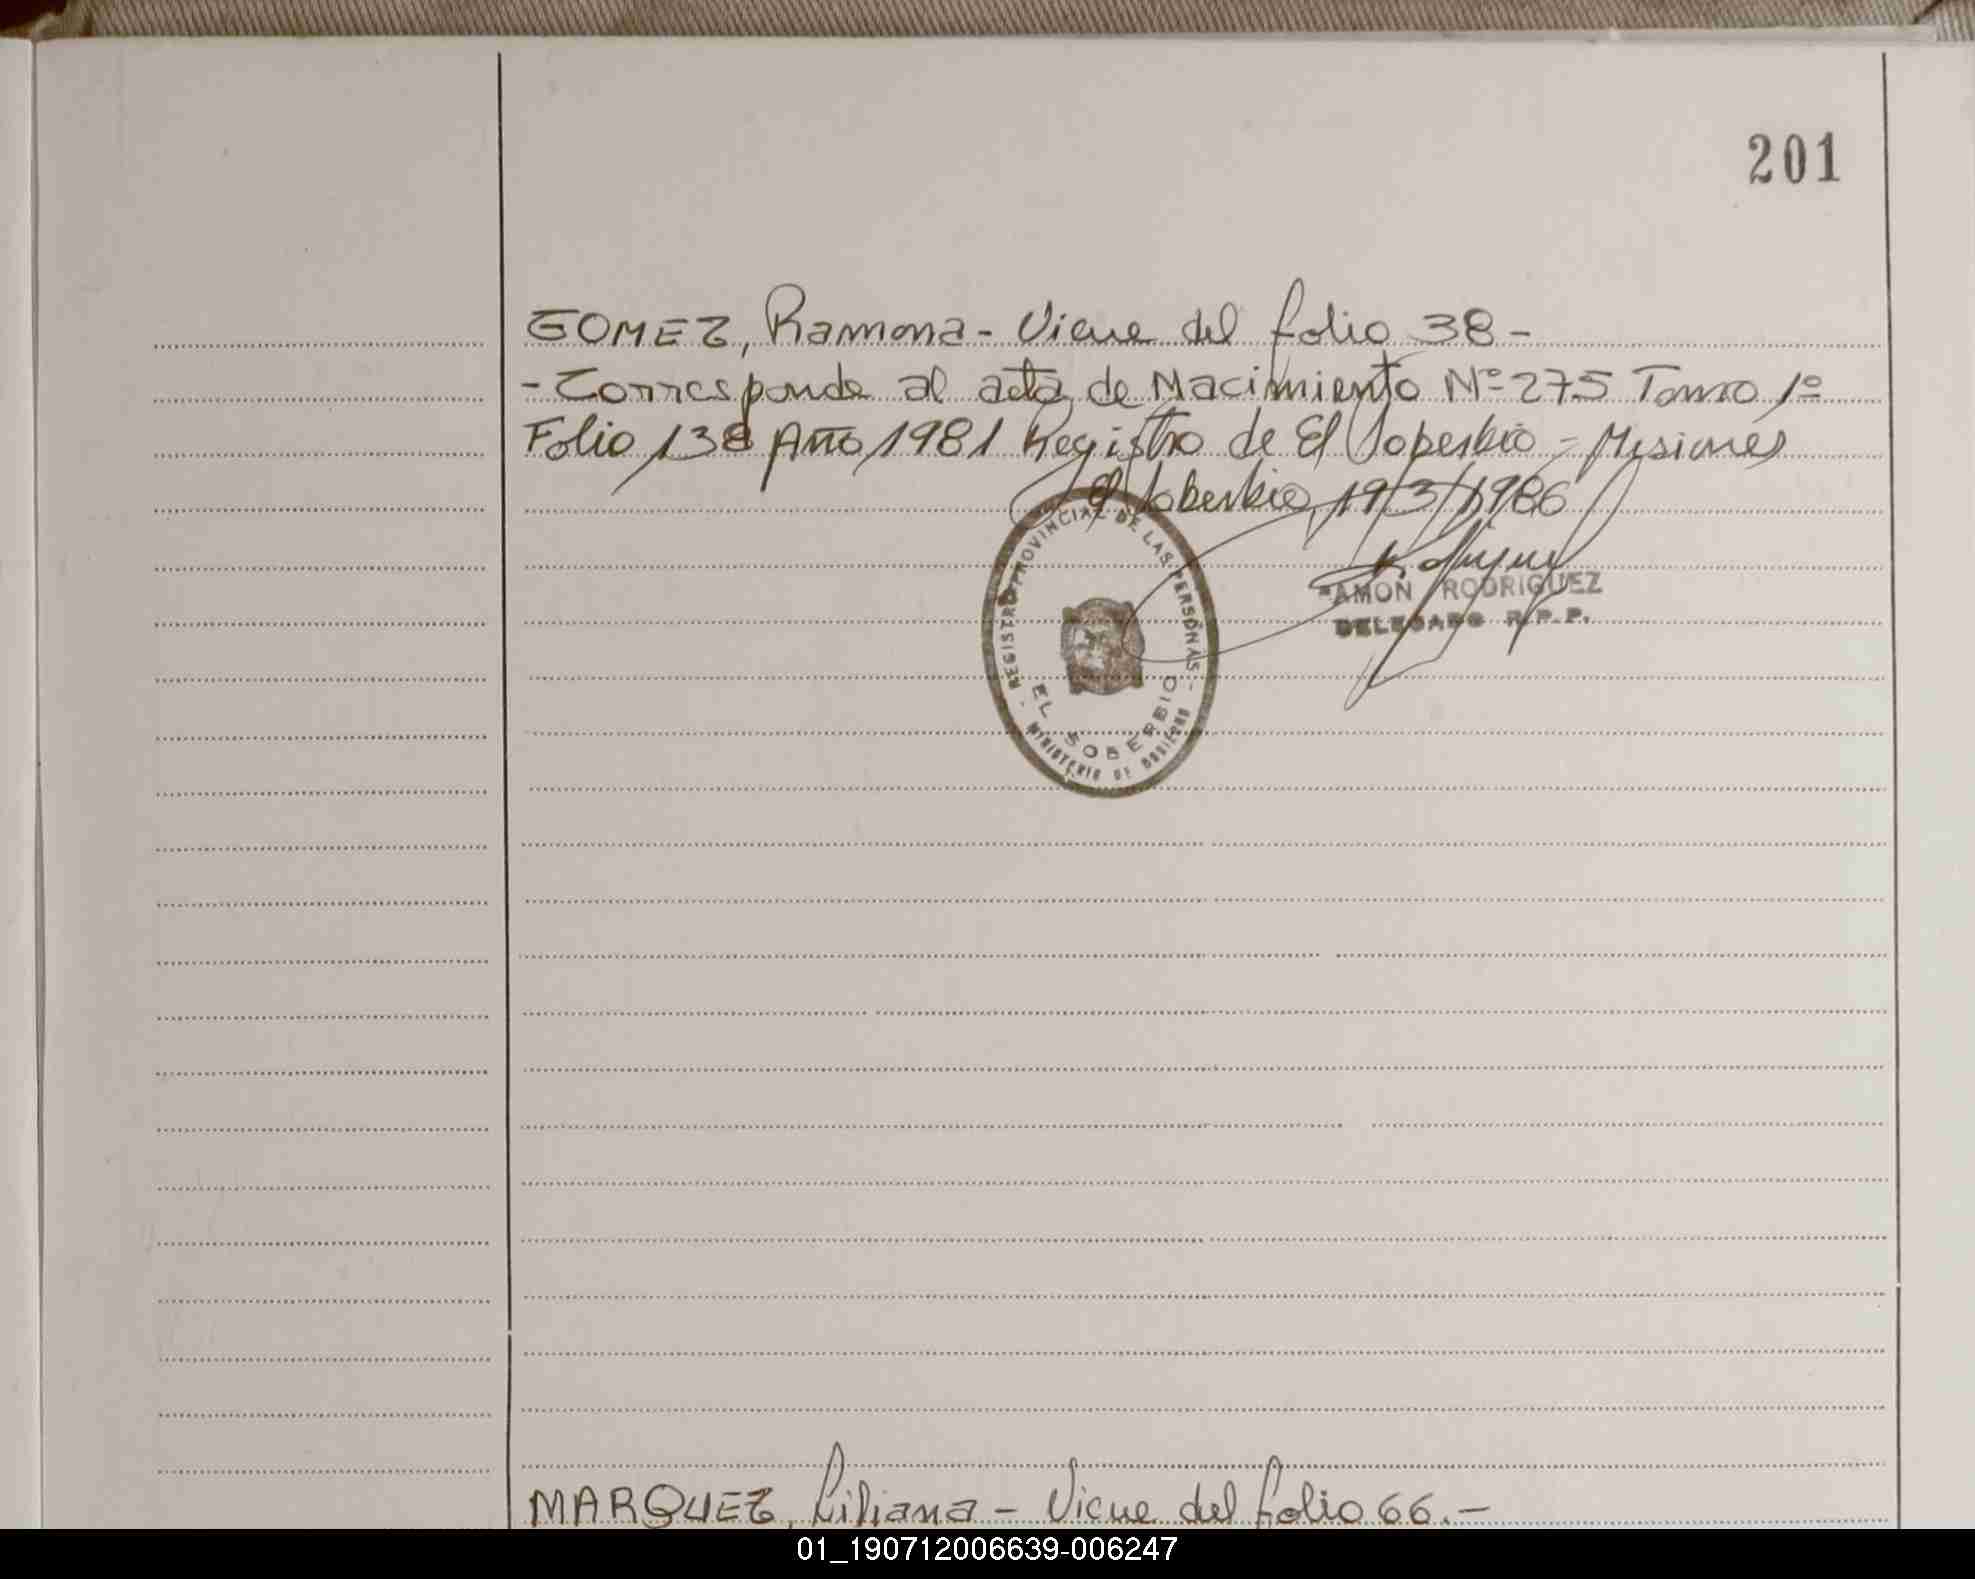 201
GOMEZ, Ramona - Viene del folio 38 -
- Corresponde al acta de Nacimiento Nº 275 Tomo 1º
Folio 138 Año 1981 Registro de El Soberbio - Misiones
El Soberbio, 19/3/1986
REGISTRO PROVINCIAL DE LAS PERSONAS -
EL SOBERBIO
- MINISTERIO DE GOBIERNO
RAMON RODRIGUEZ
DELEGADO R.P.P.
MARQUEZ, Liliana - Viene del folio 66. -
01_190712006639-006247